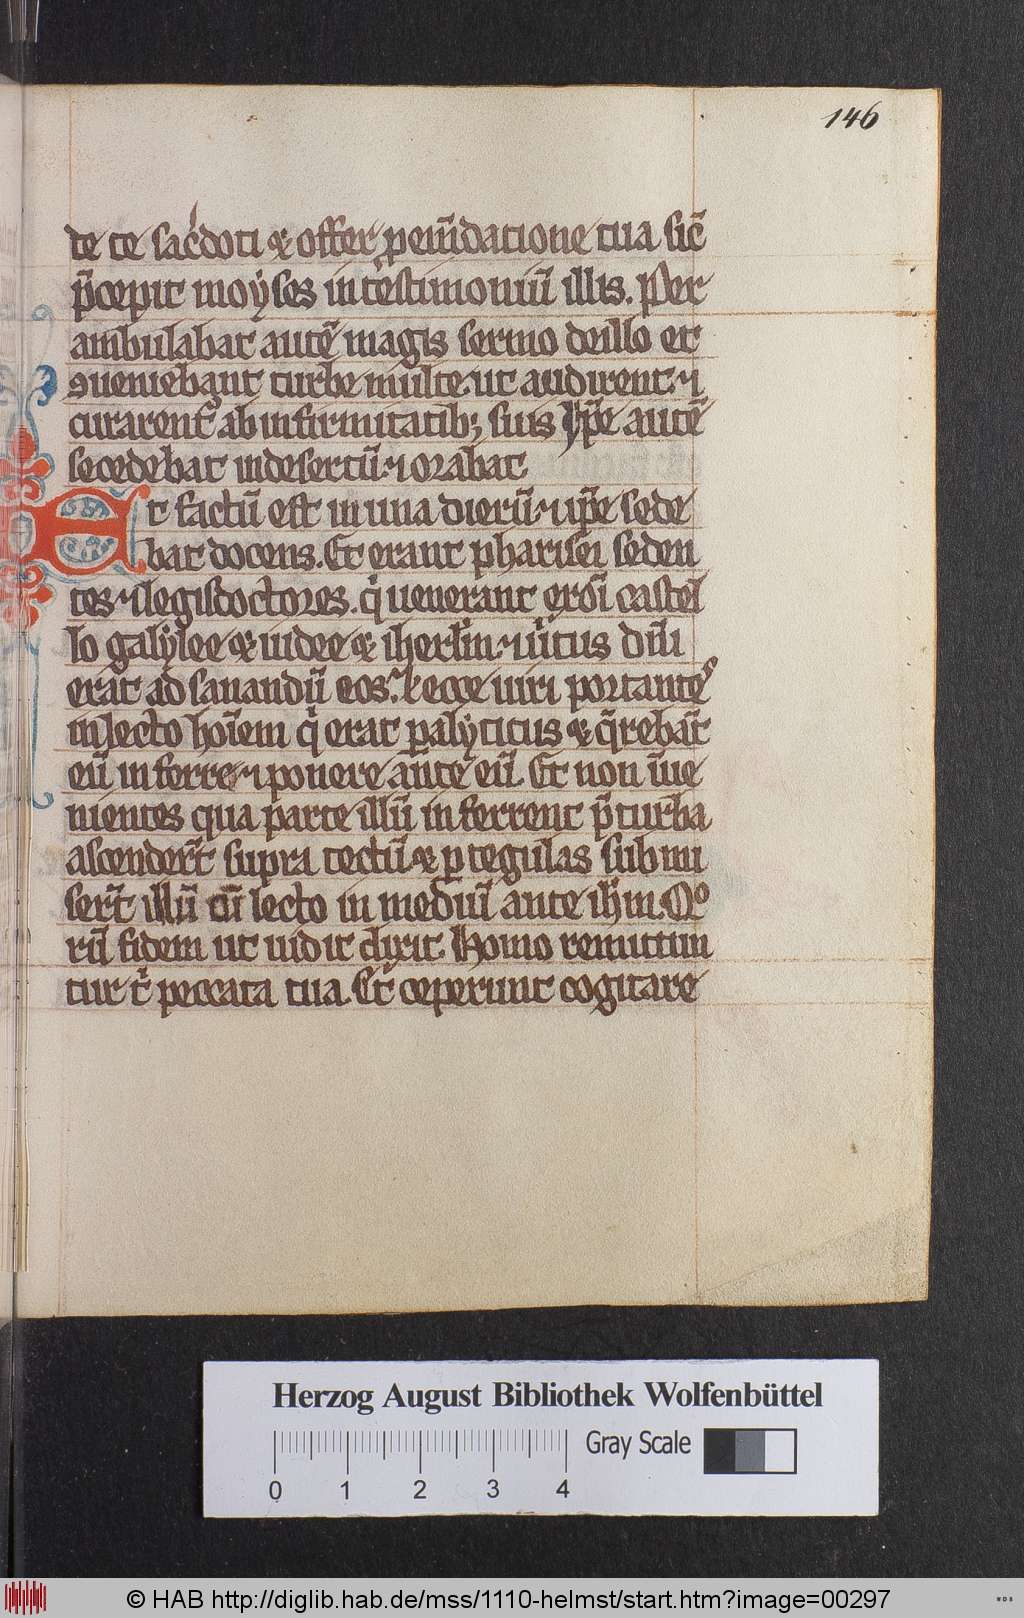 146
de te sac̃doti ⁊ offer p em̃datione tua sic̃
p̃cepit moẏses in testimoniũ illis. Per
ambulabat autẽ magis sermo deillo et
ꝯueniebant turbe multe ut audirent ⁊
curarent᷑ ab infirmitatibꝫ suis Ip̃e autẽ
secedebat indesertũ ⁊ orabat
Et factũ est in una dierũ ⁊ ip̃e sede
bat docens. Et erant pharisei seden
tes ⁊ legisdoctores. qͥ uenerant ex om̃i castel
lo galẏlee ⁊ iudee ⁊ iherl̃m ⁊ uͥtus dñi
erat ad sanandũ eos. Et ecce uiri portantes
in lecto hoĩem qͥ erat paralẏticus ⁊ q̃rebãt
eũ inferre ⁊ ponere ante eũ. Et non inue
nientes qua parte illũ inferrent p̃ turba
ascender̃t supra tectũ ⁊ ꝑ tegulas submi
ser̃t illũ cũ lecto in mediũ ante ih̃m. Qͦ
rũ fidem ut uidit dixit. Homo remittun
tur tͥ peccata tua. Et ceperunt cogitare
Herzog August Bibliothek Wolfenbüttel
Gray Scale
0 1 2 3 4
© HAB http://diglib.hab.de/mss/1110-helmst/start.htm?image=00297